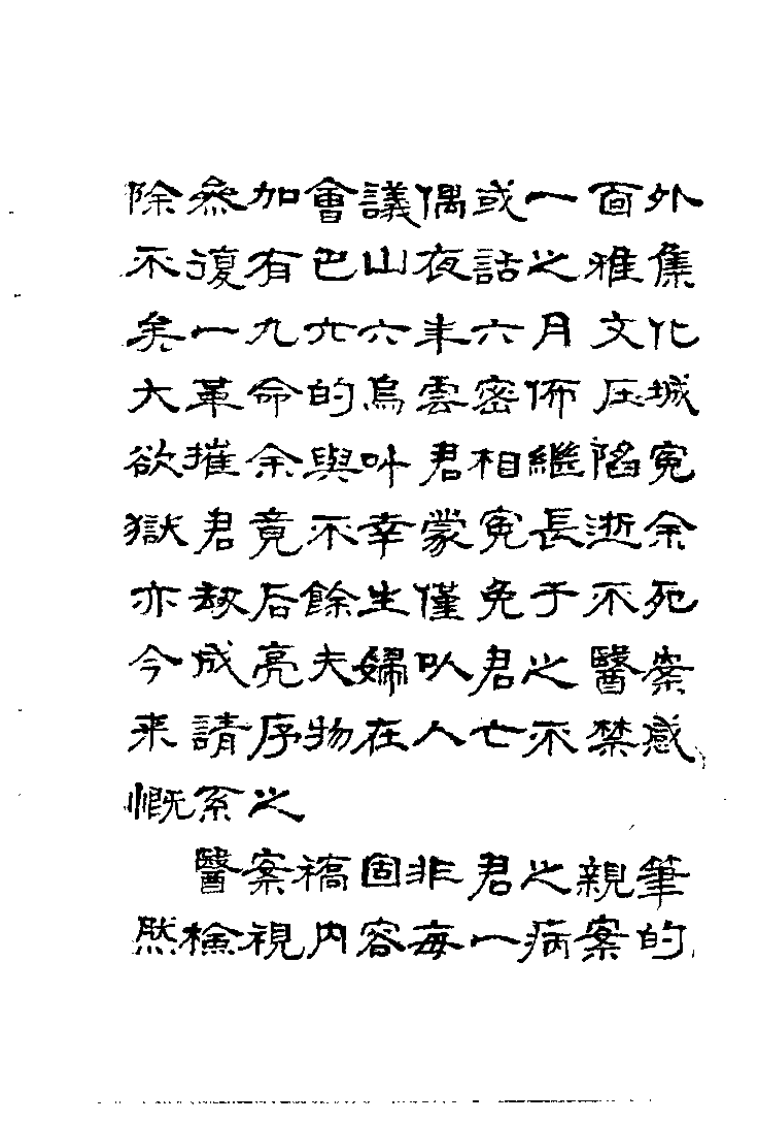 除參加會議偶或一面外
不復有巴山夜話之雅集
矣一九六六年六月文化
大革命的烏雲密佈压城
欲摧余與叶君相繼陷冤
獄君竟不幸蒙冤長逝余
亦劫后餘生僅免于不死
今成亮夫婦以君之醫案
来請序物在人亡不禁感
慨系之
醫案稿固非君之親筆
然檢視内容每一病案的